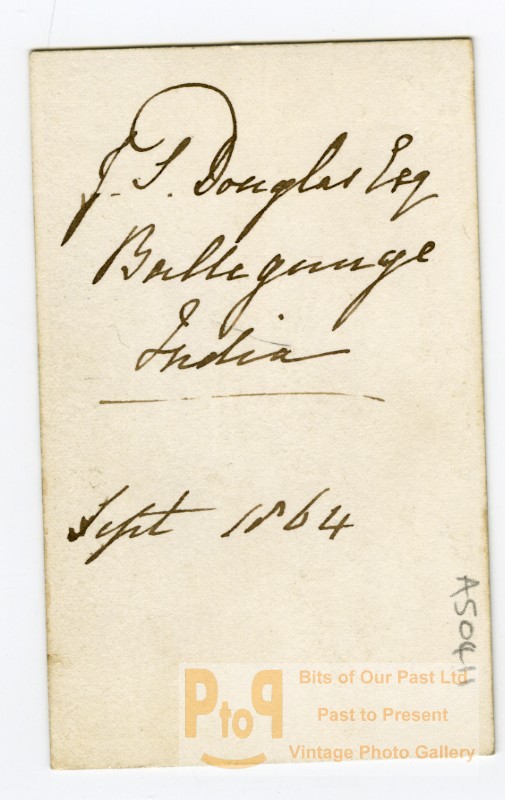 J. S. Douglas Esq
Ballegunge
India
Sept 1864
A5041
PtoP
Bits of Our Past Ltd
Past to Present
Vintage Photo Gallery